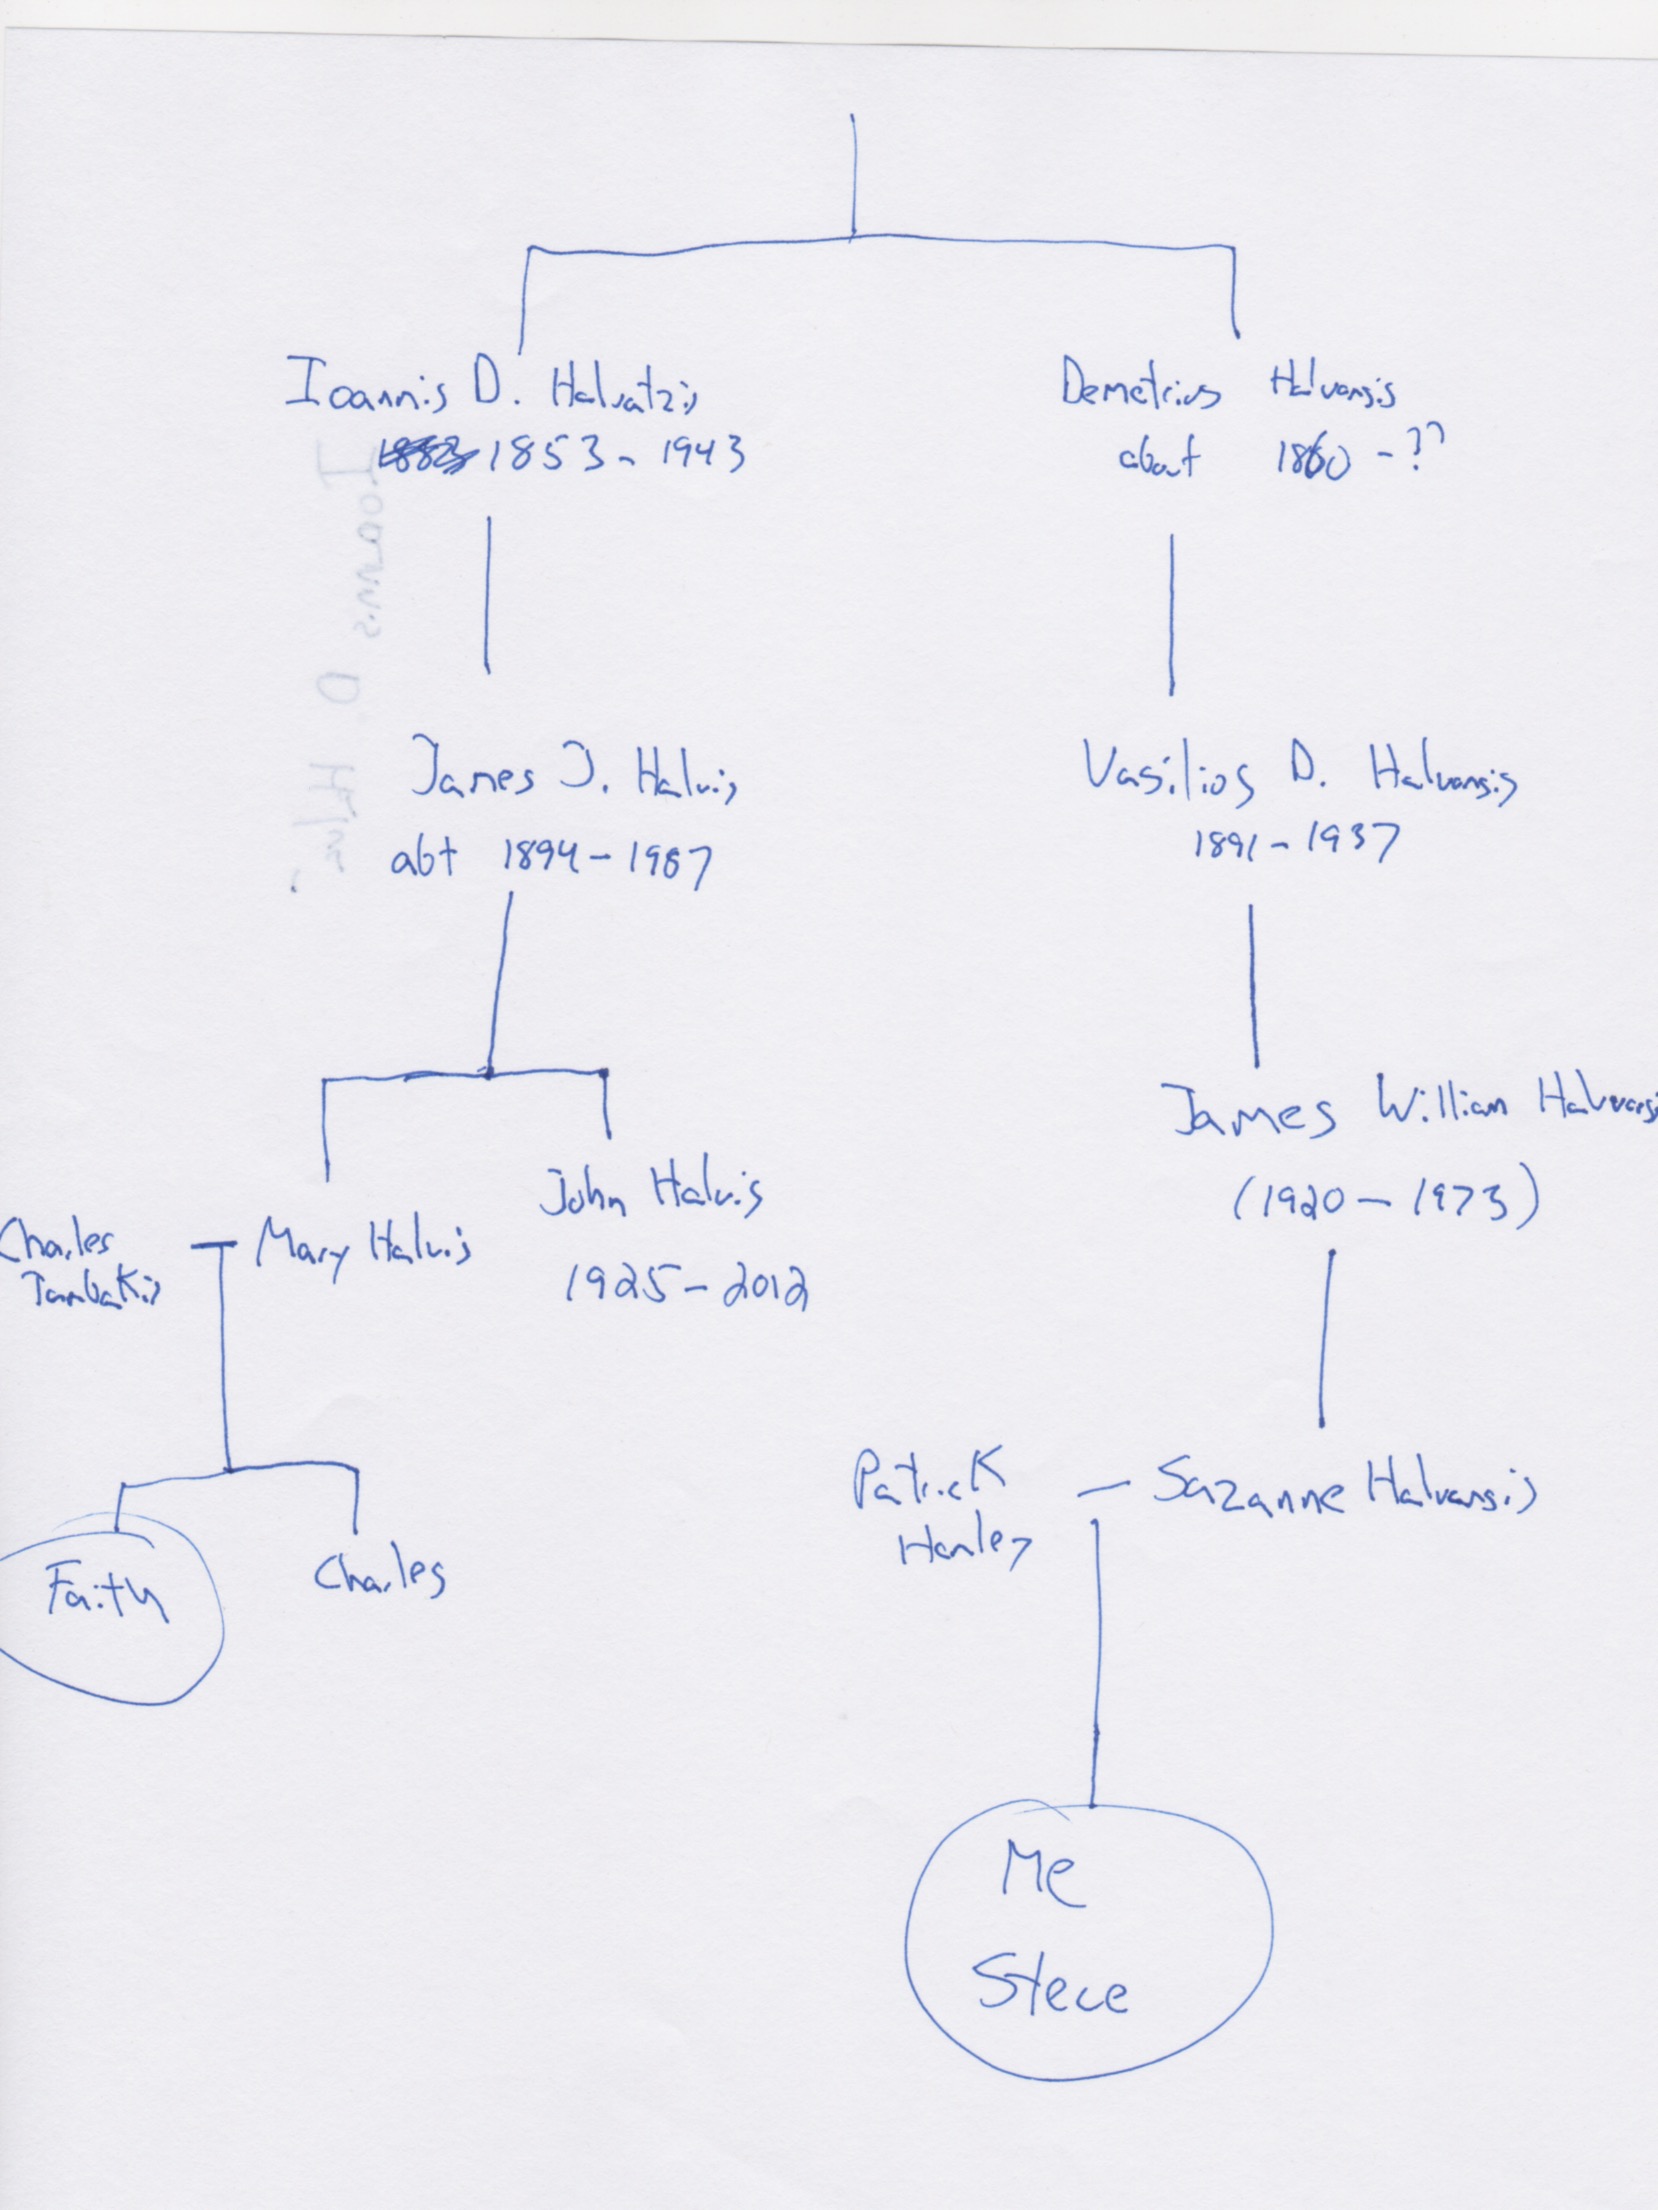 Ioannis D. Halvatzis
1853 - 1943
Demetrius Halvangis
about 1860 - ??
James J. Halvis
abt 1894 - 1967
Vasilios D. Halvangis
1891 - 1937
James William
(1920 - 1973)
John Halvis
1925 - 2012
Charles
Tambakis
Mary Halvis
Patrick
Hanley
Suzanne Halvangis
Faith
Charles
Me
Steve